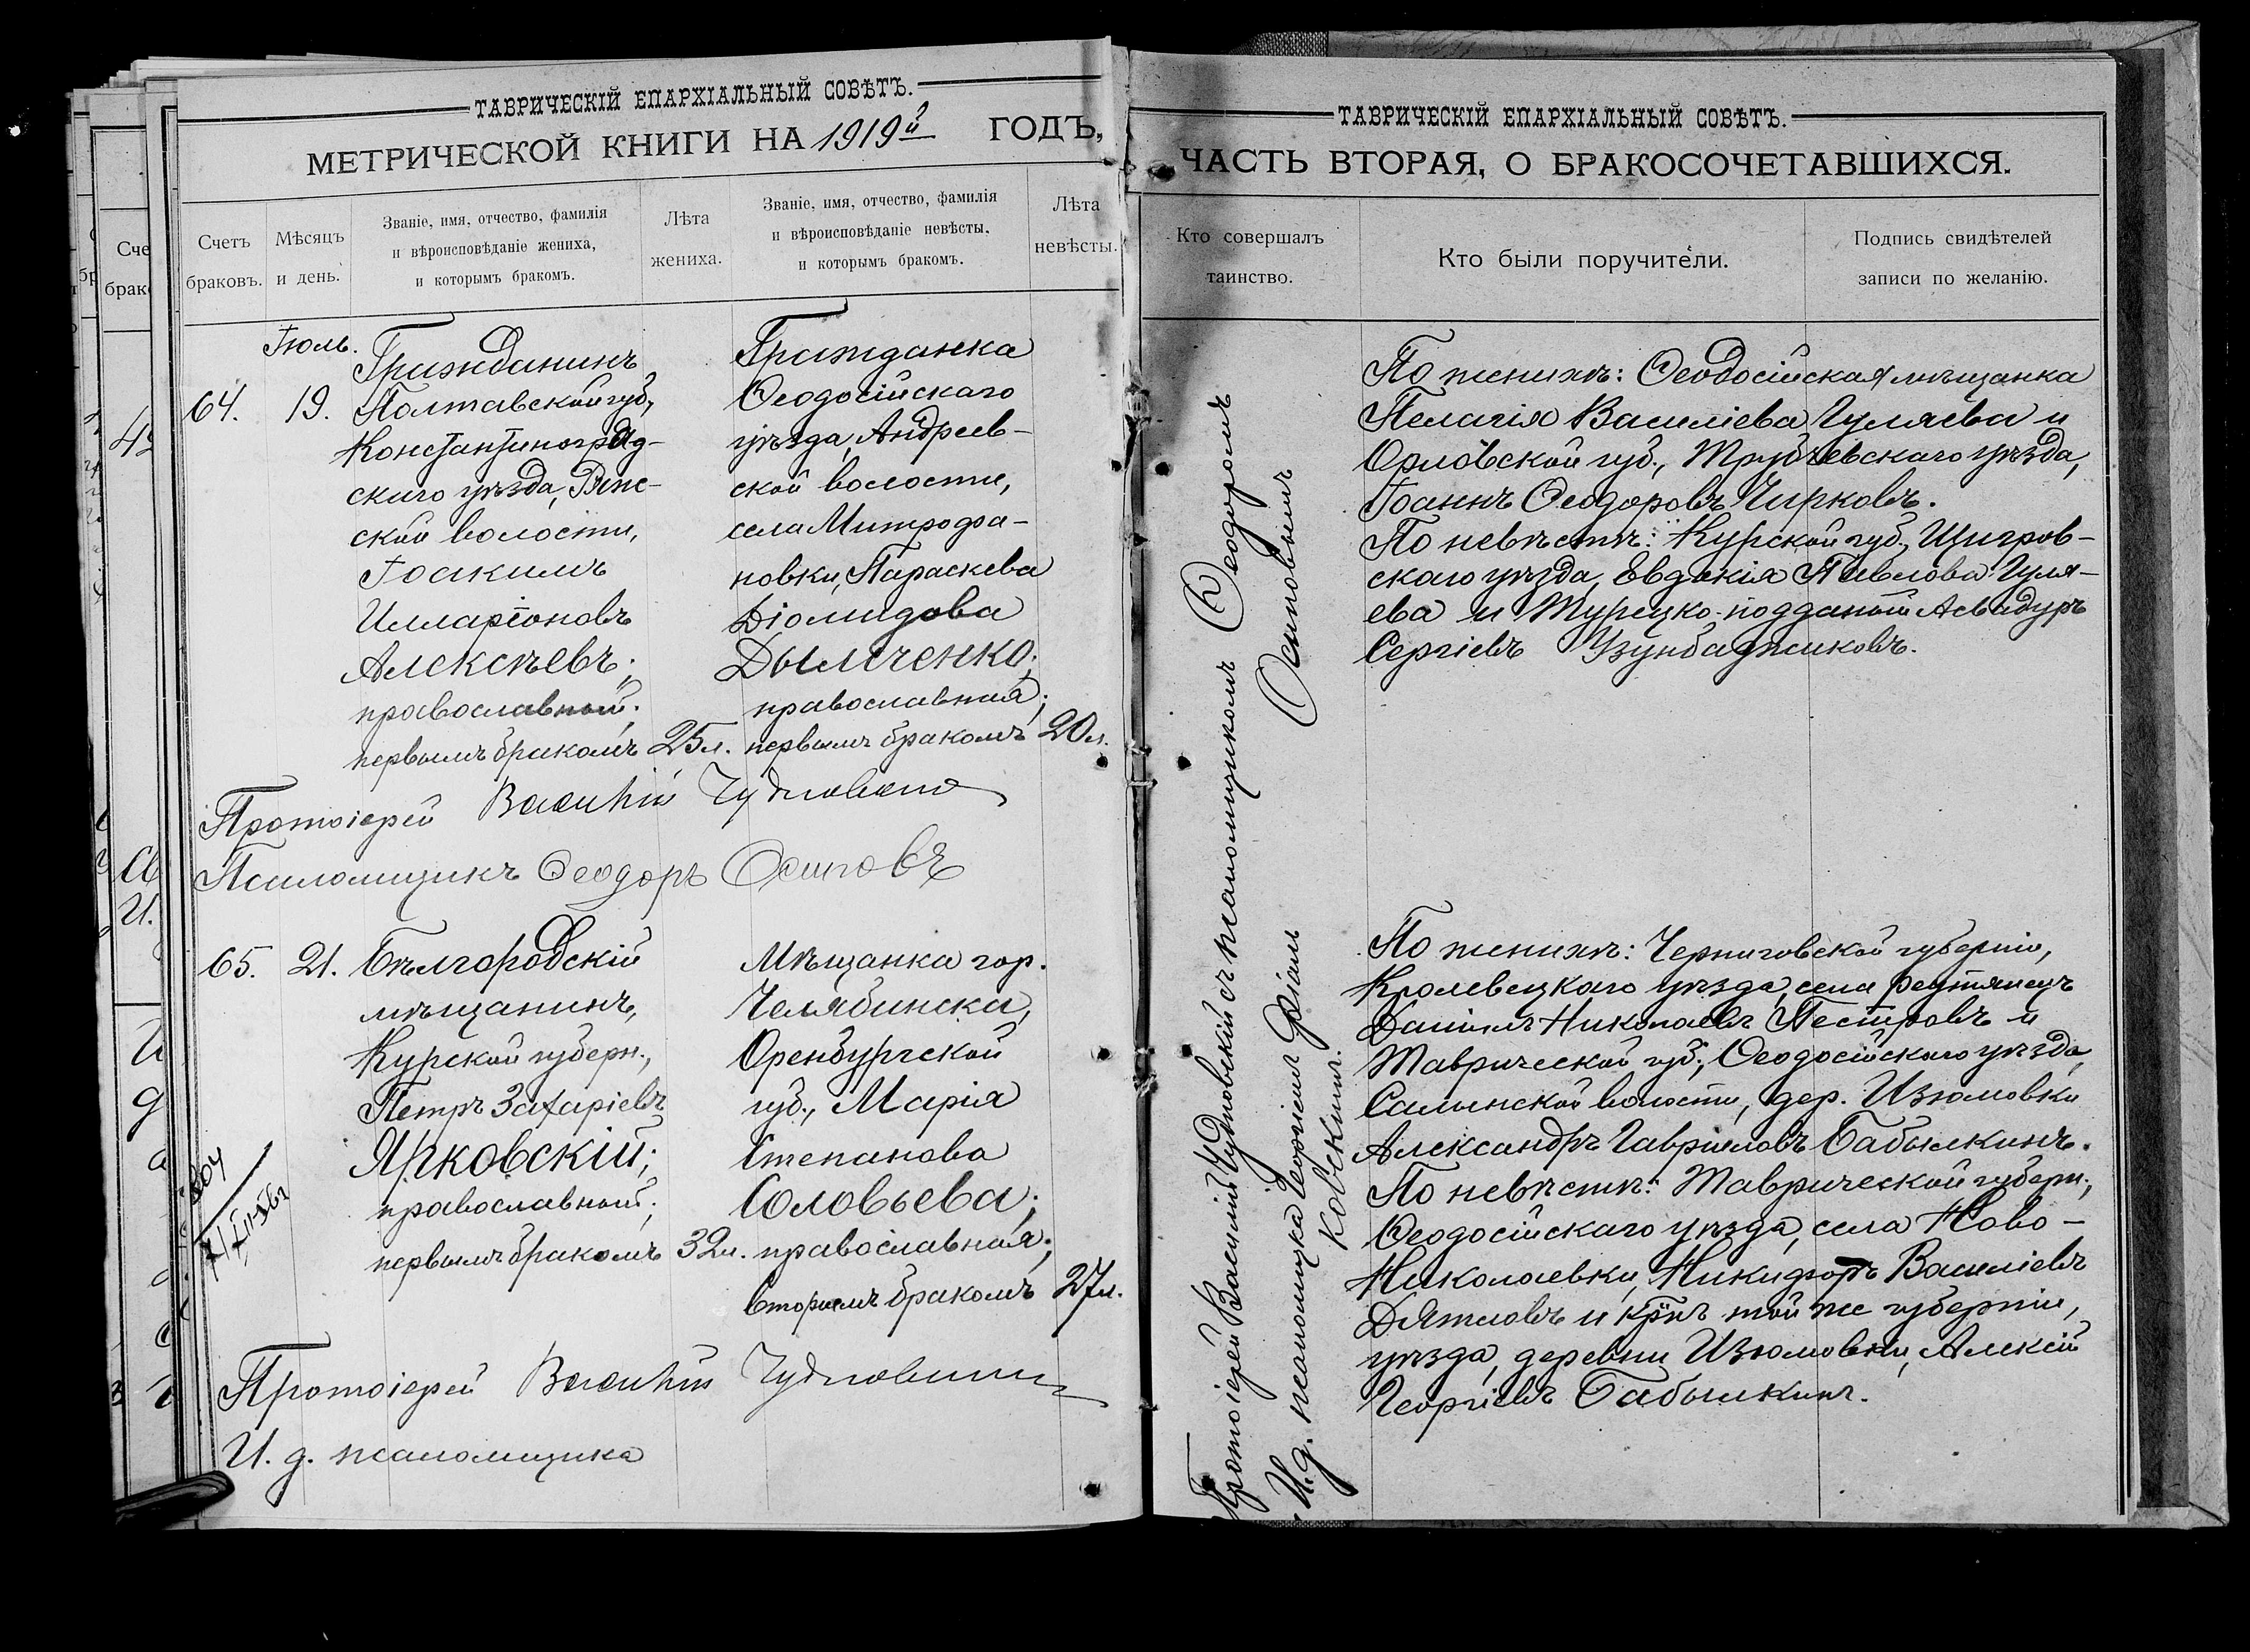 ТАВРИЧЕСКІЙ ЕПАРХІАЛЬНЫЙ СОВѢТЪ.
МЕТРИЧЕСКОЙ КНИГИ НА 1919й ГОДЪ,
Счетъ браковъ.
Мѣсяцъ и день.
Званіе, имя, отчество, фамилія
и вѣроисповѣданіе жениха,
и которымъ бракомъ.
Лѣта жениха.
Званіе, имя, отчество, фамилія
и вѣроисповѣданіе невѣсты,
и которымъ бракомъ.
Лѣта невѣсты.
Іюль.
64. 19.
Гражданинъ
Полтавской губ.,
Константиноград-
скаго уѣзда,
ской волости,
Іоакимъ
Илларіоновъ
Алексѣевъ;
православный;
первымъ бракомъ 25 л.
Гражданка
Ѳеодосійскаго
уѣзда, Андреев-
ской волости,
села Митрофа-
новки, Параскева
Діомидова
Дымченко;
православная;
первымъ бракомъ 20 л.
Протоіерей Василій Чудновскій
Псаломщикъ Ѳеодоръ Осиповъ
65. 21.
Бѣлгородскій
мѣщанинъ,
Курской губерн.,
Петръ Захаріевъ
Ярковскій;
православный;
первымъ бракомъ 32 л.
Мѣщанка гор.
Челябинска,
Оренбургской
губ., Марія
Степанова
Соловьева;
православная;
вторымъ бракомъ 27 л.
Протоіерей Василій Чудновскій
И. д. псаломщика
ТАВРИЧЕСКІЙ ЕПАРХІАЛЬНЫЙ СОВѢТЪ.
ЧАСТЬ ВТОРАЯ, О БРАКОСОЧЕТАВШИХСЯ.
Кто совершалъ таинство.
Кто были поручители.
Подпись свидѣтелей
записи по желанію.
Протоіерей Василій Чудновскій съ псаломщикомъ Ѳеодоромъ
Осиповымъ
И. д. псаломщика Георгіемъ
ковскимъ.
По женихѣ: Ѳеодосійская мѣщанка
Пелагія Василіева Гуляева и
Орловской губ., Трубчевскаго уѣзда,
Іоаннъ Ѳеодоровъ Чирковъ.
По невѣстѣ: Курской губ., Щигров-
скаго уѣзда, Евдокія Павлова Гуля-
ева и Турецко-подданый Асвадуръ
Сергіевъ Узунбаджиковъ.
По женихѣ: Черниговской губерніи,
Кролевецкаго уѣзда, села
Даніилъ Николаевъ Пестровъ и
Таврической губ., Ѳеодосійскаго уѣзда,
Салынской волости, дер. Изюмовки
Александръ Гавріиловъ Бабылкинъ.
По невѣстѣ: Таврической губерн.,
Ѳеодосійскаго уѣзда, села Ново-
Николаевки, Никифоръ Василіевъ
Дятловъ и кр̃нъ той же губерніи,
уѣзда, деревни Изюмовки, Алексій
Георгіевъ Бабышкинъ.